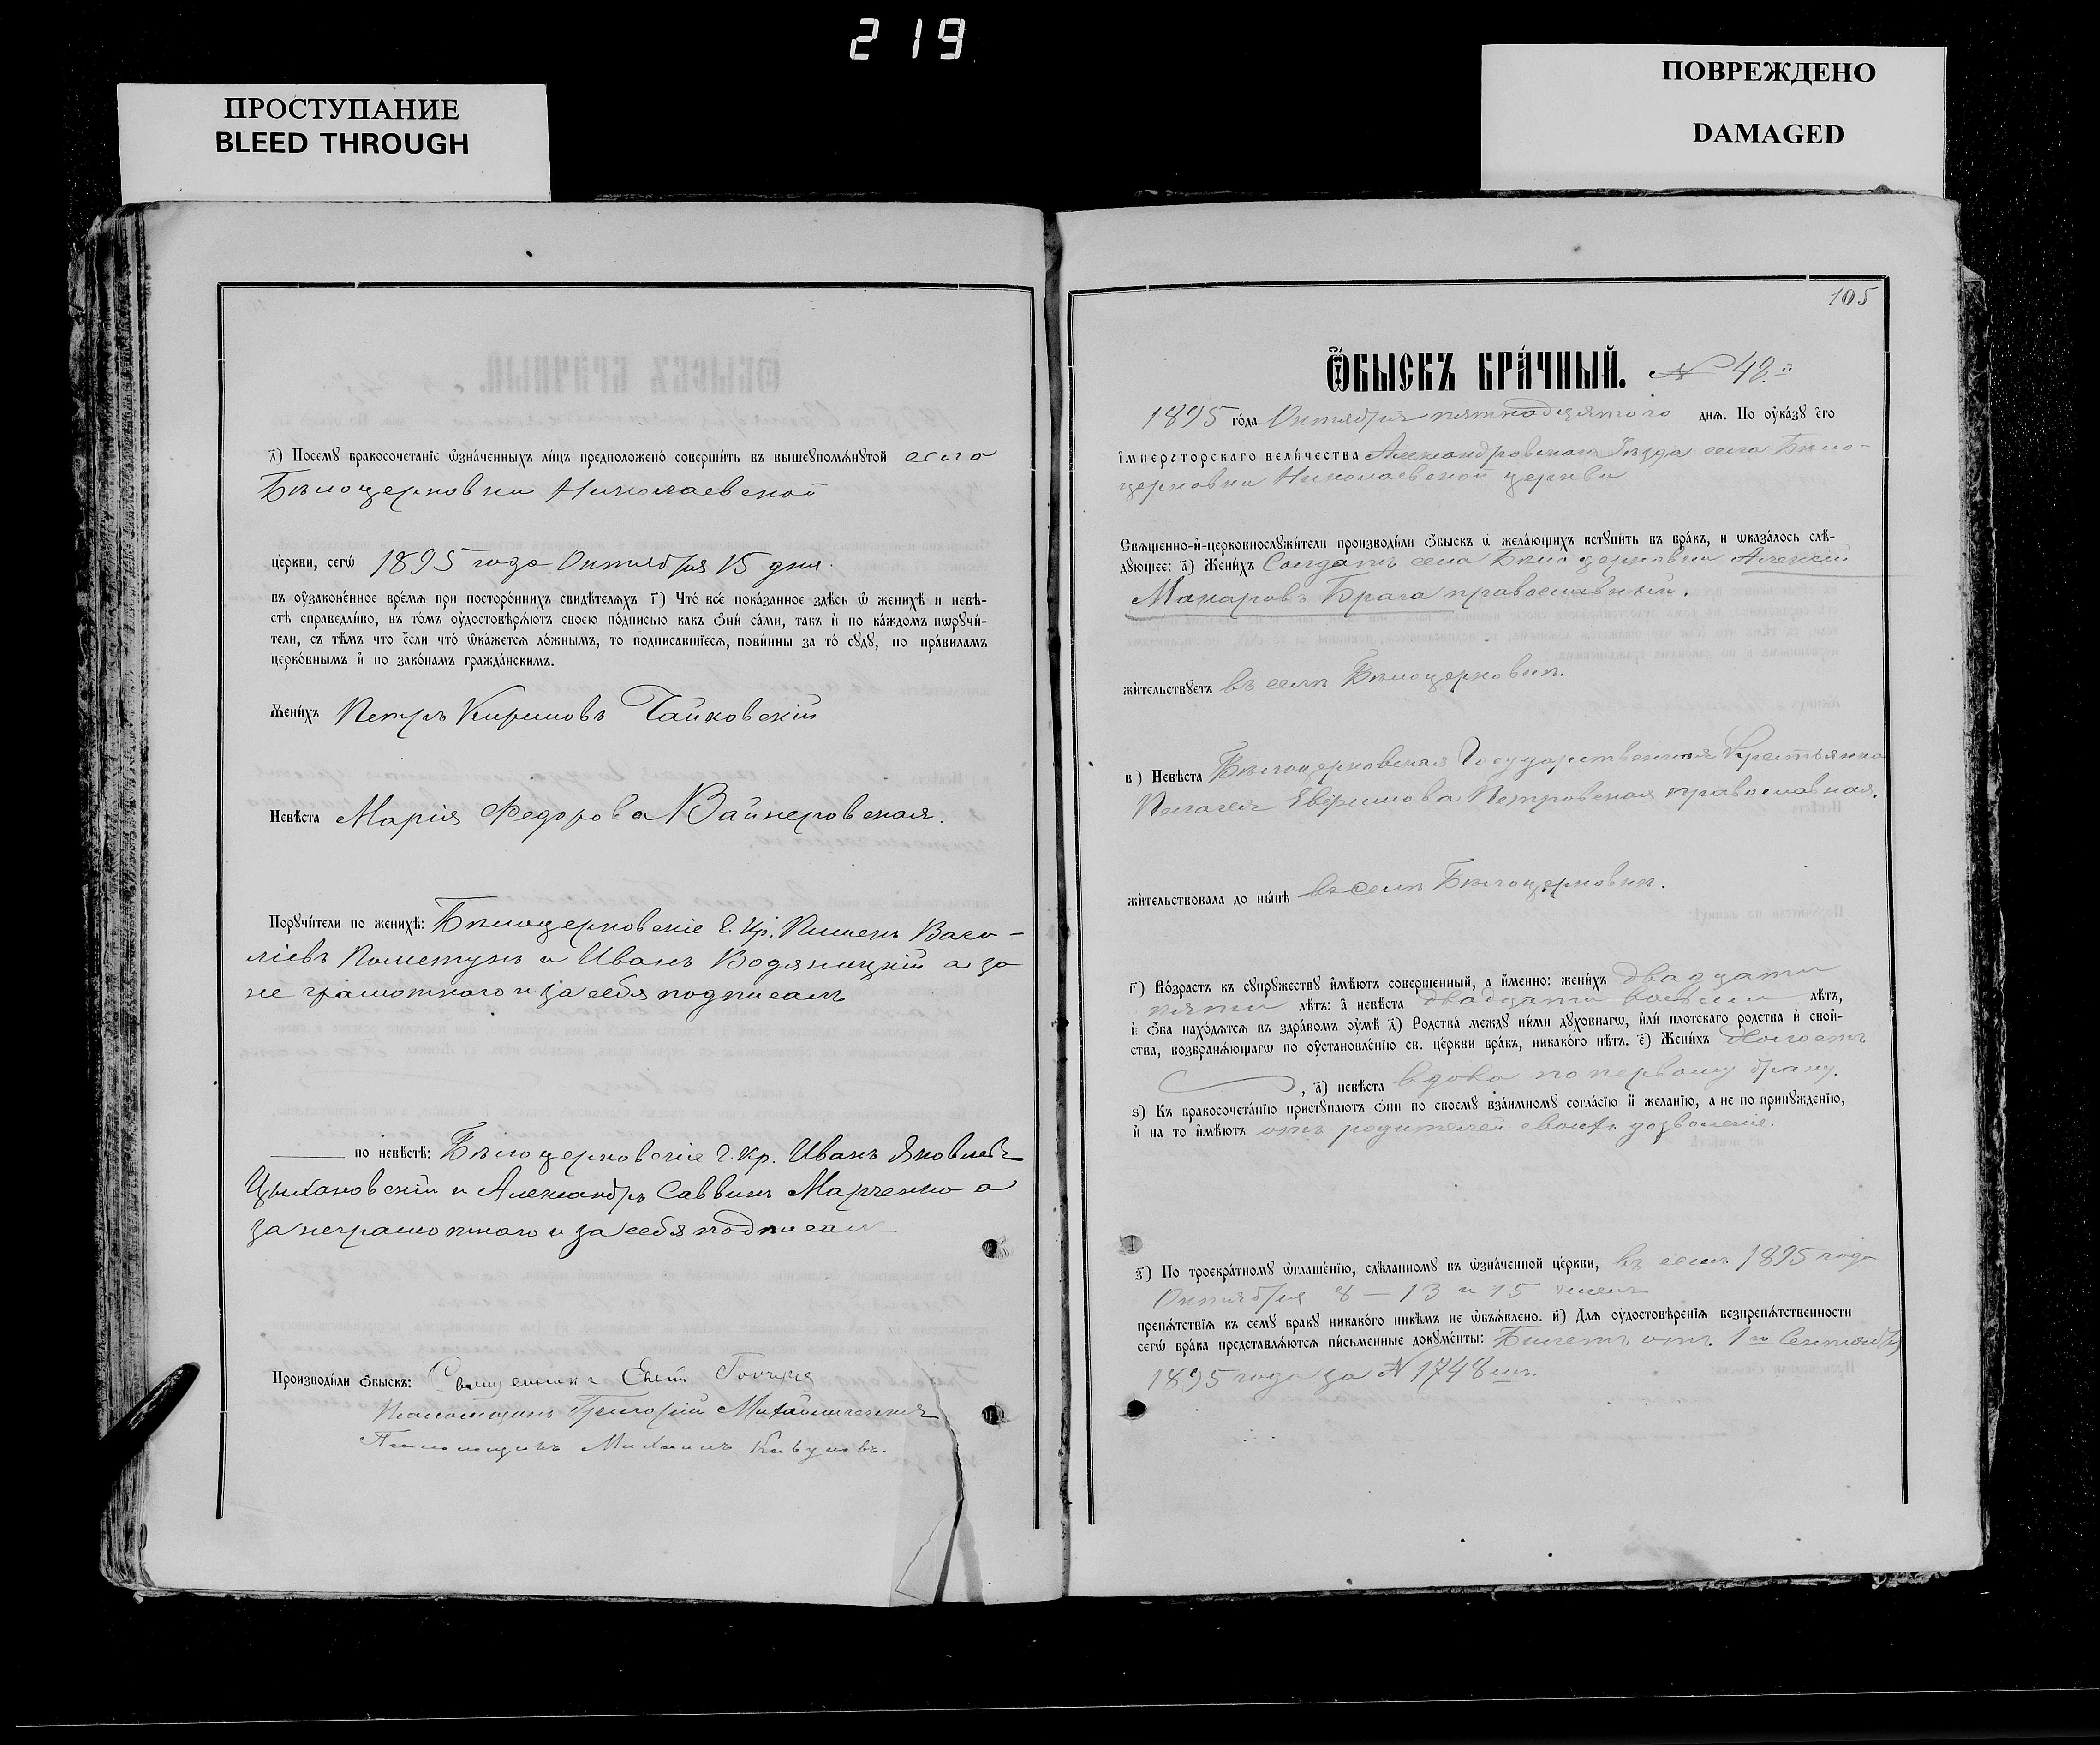 219
ПРОСТУПАНИЕ
BLEED THROUGH
ПОВРЕЖДЕНО
DAMAGED
д҃) Посемꙋ бракосочетанїе ѡзна́ченныхъ ли́цъ предположено̀ соверши́ть въ вышеꙋпомѧ́нꙋтой села
Бѣлоцерковки Николаевской
це́ркви, сегѡ̀ 1895 года Октября 15 дня.
въ ѹ҆зако́ненное вре́мѧ при посторо́ннихъ свидѣ́телѧхъ г҃) Что̀ всѐ пока́занное здѣ́сь ѡ҆ женихѣ̀ и невѣ́-
стѣ справедли́во, въ то́мъ ѹ҆достовѣрѧ́ютъ своею по́дписью какъ ѻ҆нѝ са́ми, такъ и҆ по ка́ждомъ порꙋчи́-
тели, съ тѣ́мъ что є҆́сли что̀ ѡ҆ка́жется ло́жнымъ, то подписавшїесѧ, пови́нны за то̀ сꙋдꙋ̀, по пра́виламъ
церко́внымъ и҆ по зако́намъ гражда́нскимъ.
Жени́хъ Петръ Кириловъ Чайковскій
Невѣ́ста Марія Федорова Вайнеровская.
Порꙋчи́тели по женихѣ̀: Бѣлоцерковскіе г. кр. Пименъ Васи-
ліевъ Пометунъ и Иванъ Водяницкій а за
не грамотнаго и за себя подписалъ
по невѣ́стѣ: Бѣлоцерковскіе г. кр. Иванъ Яковлевъ
Цыхановскій и Александръ Саввинъ Марченко а
за неграмотнаго и за себя подписалъ
Производи́ли ѻ҆́быскъ: Священникъ
Псаломщикъ Григорій Михайличенко
Псаломщикъ Михаилъ
105
Ѻ҆БЫСКЪ БРА́ЧНЫЙ. № 48.й
1895 го́да Октября пятнадцятого днѧ. По ѹ҆ка́зꙋ є҆го̀
і҆мператорскаго вели́чества Александровскаго Уѣзда села Бѣло-
церковки Николаевской церкви
Свѧщенно-и҆-церковнослꙋжи́тели производи́ли ѻ҆́быскъ ѡ҆ жела́ющихъ встꙋпи́ть въ бра́къ, и ѡ҆каза́лось слѣ́-
дꙋющее: а҃) Жени́хъ Солдатъ села Бѣлоцерковки Алексій
Макаровъ Брага православный.
жи́тельствꙋетъ въ селѣ Бѣлоцерковкѣ.
в҃) Невѣ́ста Бѣлоцерковская Государственная Крестьянка
Пелагея Евфимова Петровская православная.
жи́тельствовала до ны́нѣ въ селѣ Бѣлоцерковкѣ.
г҃) Во́зрастъ къ сꙋпрꙋжествꙋ и҆мѣ́ютъ совершенный, а и҆́менно: жени́хъ двадцати
пяти лѣ́тъ: а҆ невѣ́ста двадцати восьми лѣ́тъ,
и҆ ѻ҆́ба нахо́дѧтсѧ въ здра́вомъ ѹ҆мѣ̀ д҃) Родства̀ междꙋ ни́ми дꙋховнагѡ, и҆лѝ плотскаго родства и҆ свой-
ства, возбранѧ́ющагѡ по ѹ҆становле́нїю св. це́ркви бра́къ, никако́го нѣ́тъ. є҃) Жени́хъ холостъ
, д҃) невѣ́ста вдова по первому браку.
ѕ҃) Къ бракосочета́нїю пристꙋпаютъ ѻ҆нѝ по своемꙋ вза́имномꙋ согла́сїю и҆ желанїю, а не по принꙋжденїю,
и҆ на то и҆мѣ́ютъ отъ родителей своихъ дозволеніе.
з҃) По троекра́тномꙋ ѡ҆глаше́нїю, сдѣ́ланномꙋ въ ѡ҆зна́ченной це́ркви, въ семъ 1895 года
Октября 8 — 13 и 15 чиселъ
препѧ́тствїѧ къ семꙋ бракꙋ никако́го никѣ́мъ не ѡ҆бъѧ́влено. и҃) Длѧ ѹ҆достовѣ́ренїѧ безпрепѧ́тственности
сегѡ̀ бра́ка представлѧ́ютсѧ пи́сьменные докꙋме́нты: Билетъ отъ 1го Сентября
1895 года за № 1748мъ.